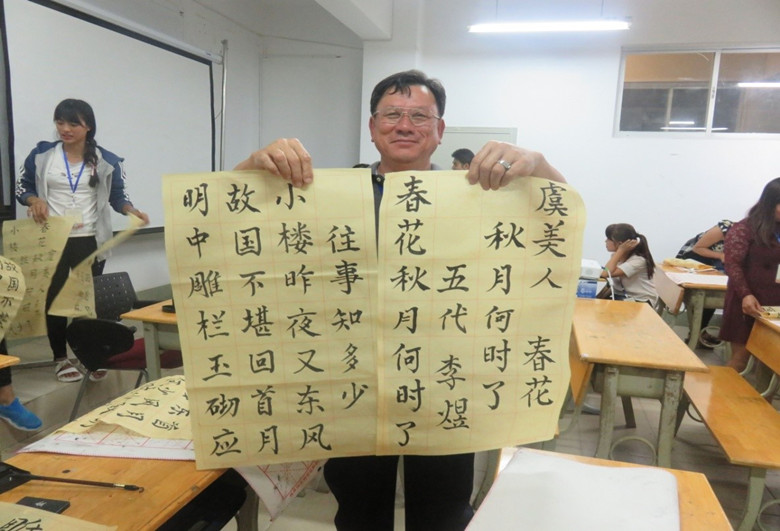 虞美人 春花
秋月何时了
五代 李煜
春花秋月何时了
往事知多少
小楼昨夜又东风
故国不堪回首月
明中雕栏玉砌应